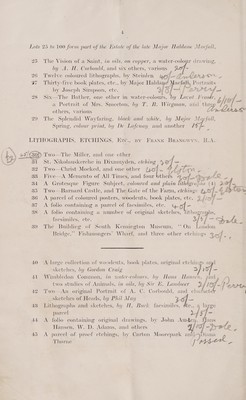 4
Lots 25 to 100 form part of the Estate of the late Major Haldane Macfall.
25 The Vision of a Saint, in silk, on copper, a water-colour drawing,
by A. H. Corbould, and six others, various
26 Twelve coloured lithographs, by Steinlen
27 Thirty-five book plates, etc., by Major Haldane Macfall, Portraits
by Joseph Simpson, etc.
28 Six—The Bather, one other in water-colours, by Lovat Fraser,
a Portrait of Mrs. Smeeton, by T. R. Wigman, and three
others, various
29 The Splendid Wayfaring, black and white, by Major Macfall,
Spring, colour print, by De Lafontay and another 15/-
LITHOGRAPHS, ETCHINGS, ETC., BY FRANK BRANGWYN, R.A.
30 Two—The Miller, and one other
31 St. Nikolauskerche in Dixmuyden, etching 20/-
32 Two—Christ Mocked, and one other
33 Five—A Memento of All Times, and four others
34 A Grotesque Figure Subject, coloured and plain lithographs
35 Two—Barnard Castle, and The Gate of the Farm, etchings
36 A parcel of coloured posters, woodcuts, book plates, etc.
37 A folio containing a parcel of facsimiles, etc.
38 A folio containing a number of original sketches, lithographs,
facsimiles, etc.
39 The Building of South Kensington Museum, "On London
Bridge," Fishmongers' Wharf, and three other etchings
40 A large collection of woodcuts, book plates, original etchings and
sketches, by Gordon Craig
41 Wimbledon Common, in water-colours, by Hans Hansen, and
two studies of Animals, in oils, by Sir E. Landseer
42 Two—An original Portrait of A. C. Corbould, and character
sketches of Heads, by Phil May
43 Lithographs and sketches, by H. Buck facsimiles, etc., a large
parcel
44 A folio containing original drawings, by John Austen, Hans
Hansen, W. D. Adams, and others
45 A parcel of proof etchings, by Carton Moorepark and William
Thorne Passed.